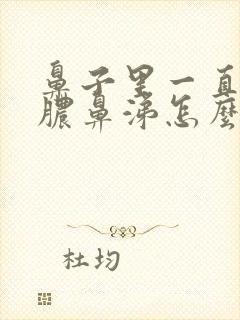 鼻子里一直
膿鼻涕怎麼
杜均